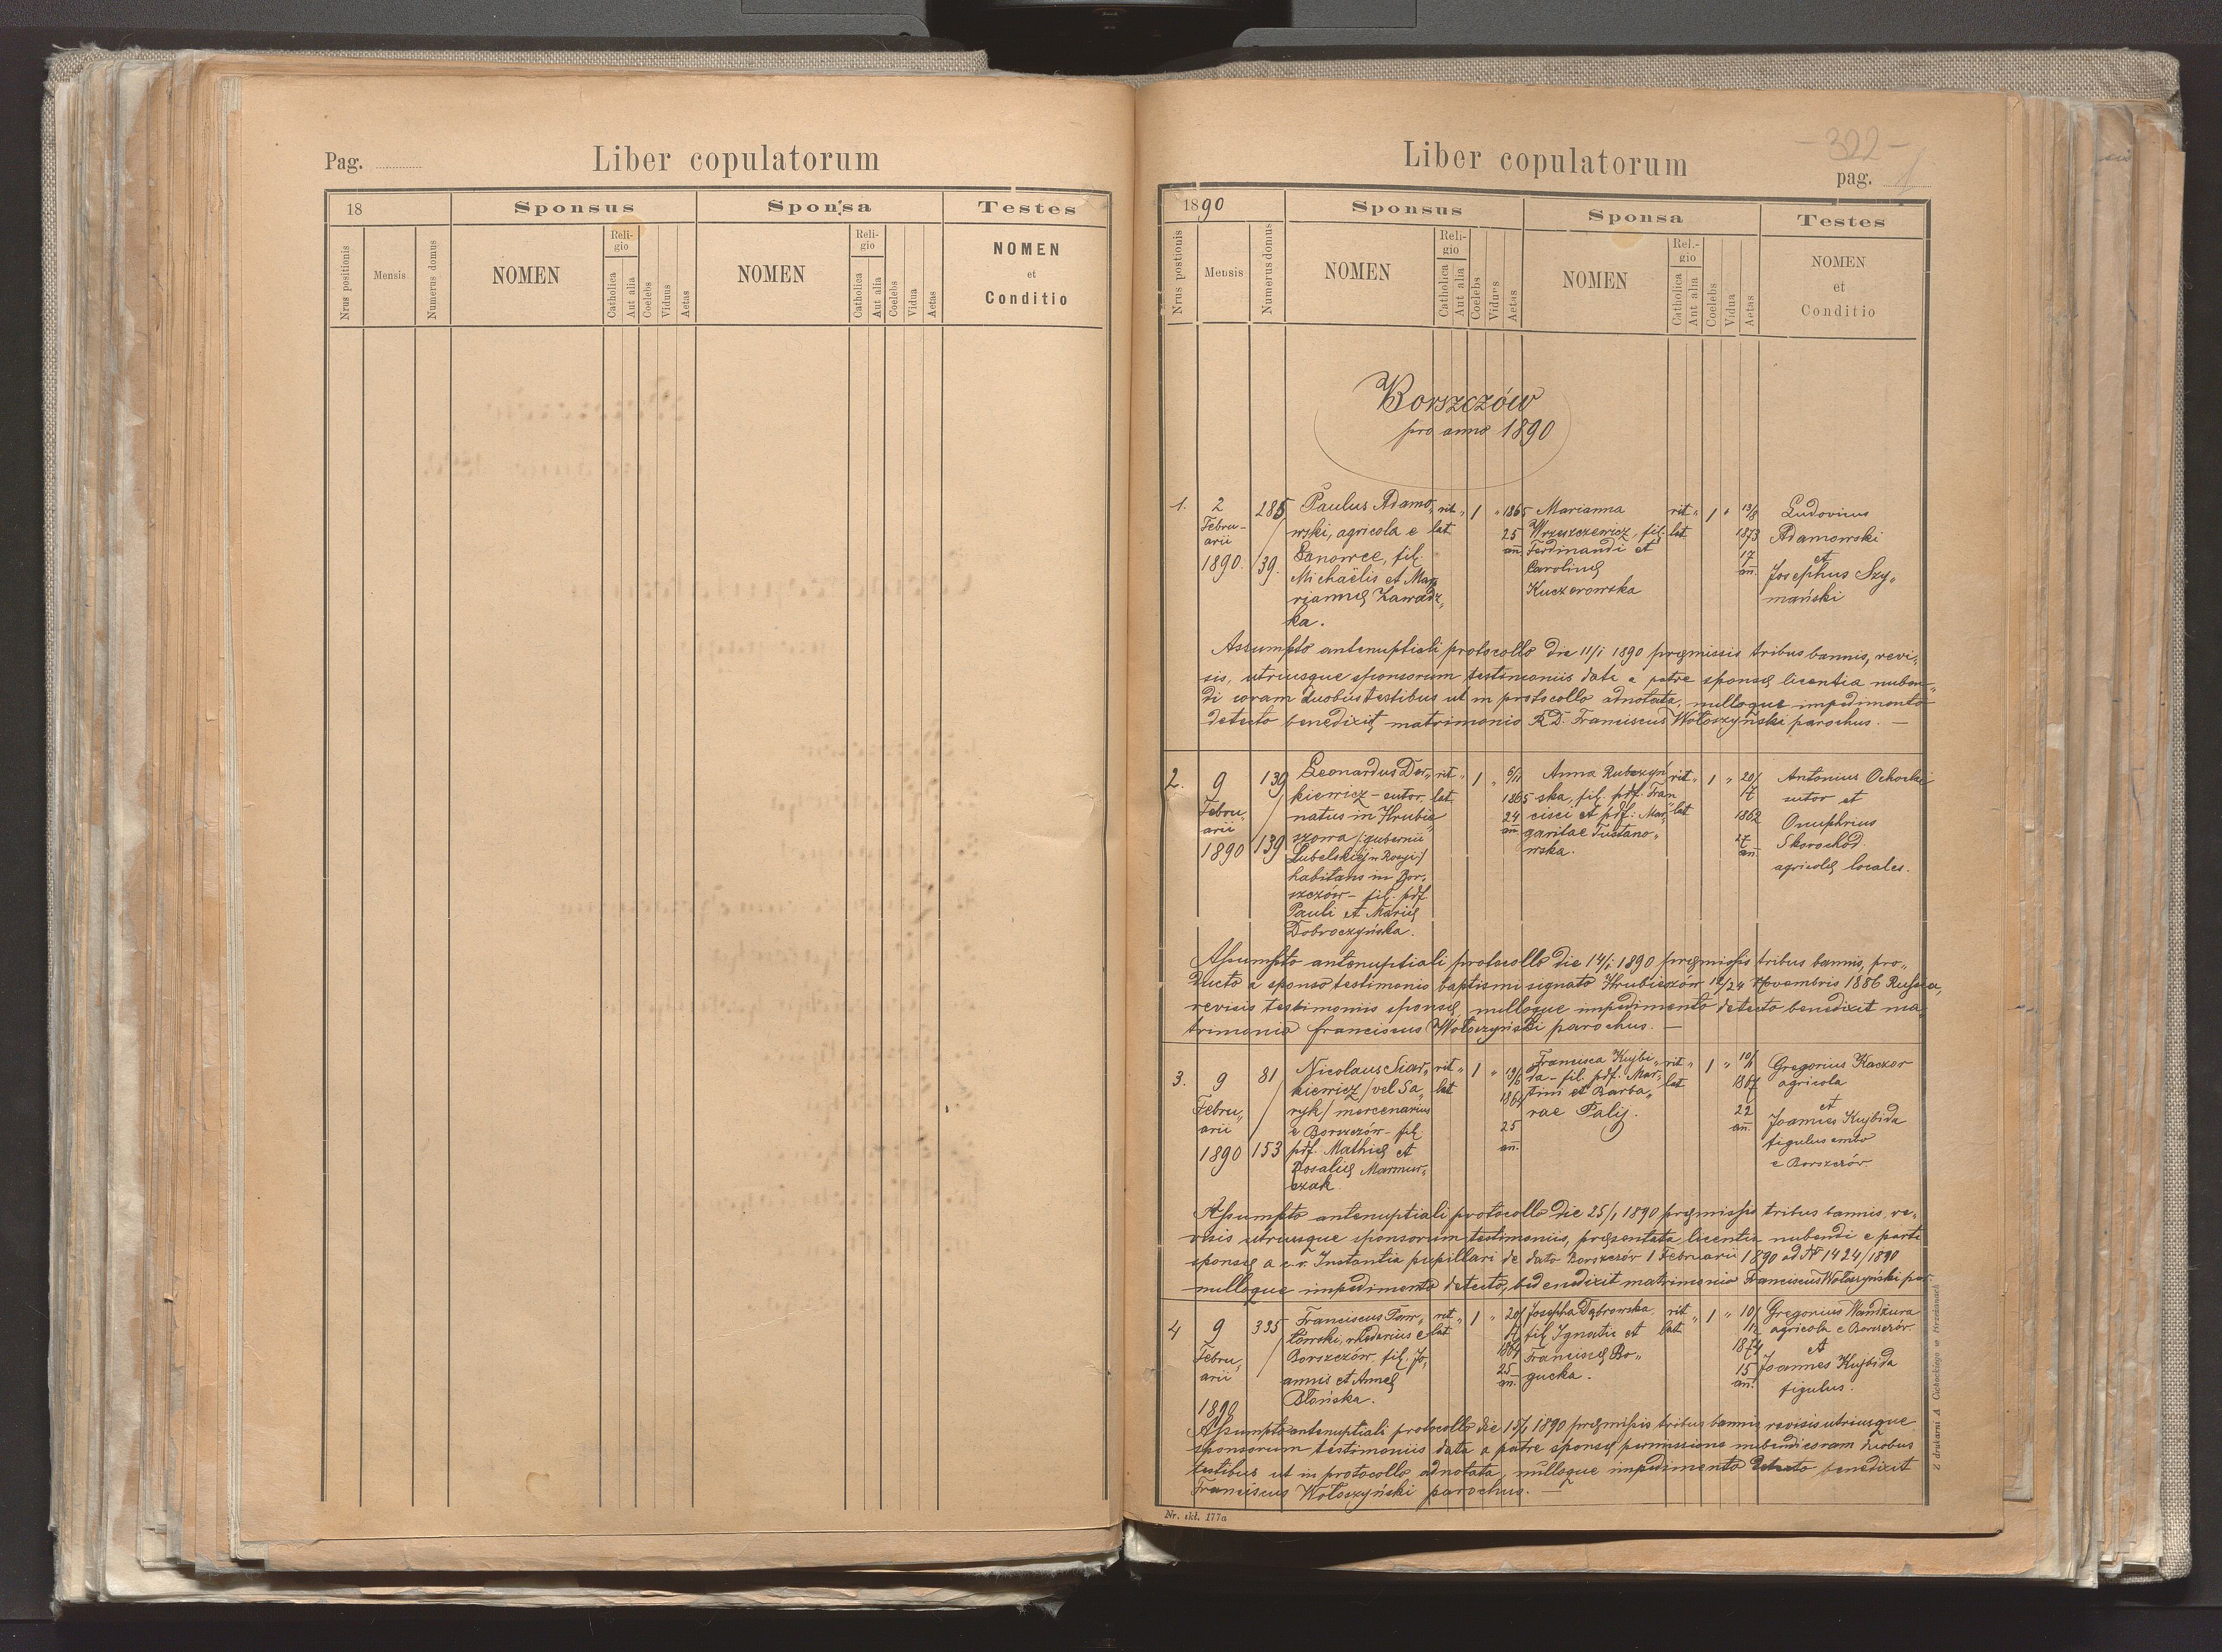 Pag.
Liber copulatorum
18
Sponsus
Sponsa
Testes
Nrus positionis
Mensis
Numerus domus
NOMEN
Religio
Catholica
Aut alia
Coelebs
Viduus
Aetas
NOMEN
Religio
Catholica
Aut alia
Coelebs
Vidua
Aetas
NOMEN
et
Conditio
- 322 -
Liber copulatorum
pag. 1
1890
Sponsus
Sponsa
Testes
Nrus postionis
Mensis
Numerus domus
NOMEN
Religio
Catholica
Aut alia
Coelebs
Viduus
Aetas
NOMEN
Rel.-gio
Catholica
Aut alia
Coelebs
Vidua
Aetas
NOMEN
et
Conditio
Borszczów
pro anno 1890
1.
2
Febru-
arii
1890.
285
/
139.
Paulus Adamo„
wski, agricola e
Lanowce, fil.
Michaëlis et Ma„
riannę Zawadz„
ka.
rit „
lat
1 „
1865
25
an̄.
Marianna
Wrzeszczewicz, fil.
Ferdinandi et
Carolinę
Kuczerowska
rit „
lat
1 „
13/8
1873
17
an̄.
Ludovicus
Adamowski
et
Josephus Szy„
mański
Assumpto antenuptiali protocollo die 11/1 1890 pręmissis tribus bannis, revi„
sis, utriusque sponsorum testimoniis data a patre sponsę licentia nuben„
di coram duobus testibus ut in protocollo adnotata, nulloque impedimento
detecto benedixit matrimonio R.D. Franciscus Wołoszyński parochus. —
2.
9
Febru„
arii
1890
139
/
139
Leonardus Der„
kiewicz - sutor,
natus in Hrubie„
szowa /: gubernii
Lubelskiej in Rosyi /
habitans in Bor„
szczów - fil. pdf
Pauli et Marię
Dobroczyńska.
rit „
lat
1 „
6/11
1865
24
an̄
Anna Rubczyń
ska, fil. pdf. Fran
cisci et pdf: Mar„
garitae Tustano„
wska.
rit „
lat
1 „
20/
17
1862
27
an̄.
Antonius Ochocki
sutor et
Onuphrius
Skorochód
agricolę locales.
Assumpto antenuptiali protocollo die 14/1 1890 pręmissis tribus bannis, pro„
ducto a sponso testimonio baptismi signato Hrubieszów 12/24 Novembris 1886 Russia,
revisis testimoniis sponsę, nulloque impedimento detecto benedixit ma„
trimonio Franciscus Wołoszyński parochus. —
3.
9
Febru„
arii
1890
81
/
153
Nicolaus Siar„
kiewicz / vel Sa„
ryk / mercenarius
e Borszczów - fil.
pdf. Mathię et
Rosalię Marmur„
czak.
rit „
lat
1 „
19/6
1864
25
an̄.
Francisca Kujbi„
da - fil. pdf. Mar„
tini et Barba„
rae Palij.
rit „
lat
1 „
1867
22
an̄.
Gregorius Kaczor
agricola
et
Joannes Kujbida
figulus ambo
e Borszczów
Assumpto antenuptiali protocollo die 25/1 1890 pręmissis tribus bannis, re„
visis utriusque sponsorum testimoniis, pręsentata licentia nubendi e parte
sponsę a c.r. Instantia pupillari de dato Borszczów 1 Februarii 1890 ad № 1424/1890
nulloque impedimento detecto, benedixit matrimonio Franciscus Wołoszyński par.
4
9
Febru„
arii
1890
335
/
Franciscus
rhedarius e
Borszczów, fil. Jo„
annis et Annę
Błońska.
rit „
lat
1 „
1864
25
an̄.
Josepha Dąbrowska,
fil. Ignatii et
Franciscę Bo„
gucka.
rit „
lat
1 „
10/
12
1874
15
an̄.
Gregorius Wandzura
agricola e Borszczów
et
Joannes Kujbida
figulus.
Assumpto antenuptiali protocollo die 1890 pręmissis tribus bannis, revisis utriusque
sponsorum testimoniis data a patre sponsę permissione nubendi coram duobus
testibus ut in protocollo adnotata, nulloque impedimento detecto benedixit
Franciscus Wołoszyński parochus. —
Nr. skł. 177a
Z drukarni A. Cichockiego w Brzeżanach